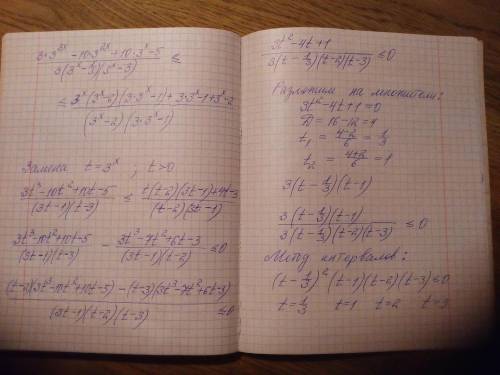 3·3^{3x} - 10·3^{2x} + 10·3^x - 5 / 3(3^x - 1/3)(3^x - 3) ≤
≤ 3^x(3^x-2)(3·3^x-1) + 3·3^x-1+3^x-2 / (3^x-2)(3·3^x-1)
Замена t = 3^x , t>0
3t³-10t²+10t-5 / (3t-1)(t-3) ≤ t(t-2)(3t-1)+4t-3 / (t-2)(3t-1)
3t³-10t²+10t-5 / (3t-1)(t-3) - 3t³-7t²+6t-3 / (3t-1)(t-2) ≤0
(t-2)(3t³-10t²+10t-5) - (t-3)(3t³-7t²+6t-3) / (3t-1)(t-2)(t-3) ≤0
3t²-4t+1 / 3(t-1/3)(t-2)(t-3) ≤0
Разложим на множители:
3t²-4t+1=0
D = 16-12=4
t₁ = 4-2/6 = 1/3
t₂ = 4+2/6 = 1
3(t-1/3)(t-1)
3(t-1/3)(t-1) / 3(t-1/3)(t-2)(t-3) ≤0
Метод интервалов:
(t-1/3)²(t-1)(t-2)(t-3)≤0
t=1/3 t=1 t=2 t=3